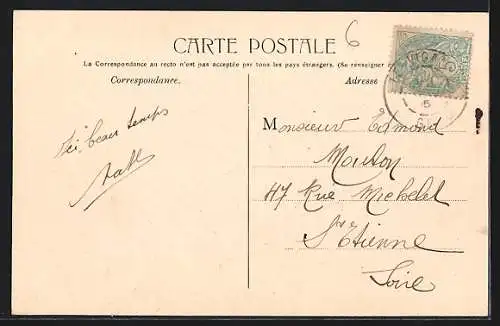 6
CARTE POSTALE
La Correspondance au recto n'est pas acceptée par tous les pays étrangers. (Se renseigner
Correspondance.
Adresse
5
Très beau temps
Monsieur Edmond
Moulon
47 Rue Michelet
St Etienne
Loire